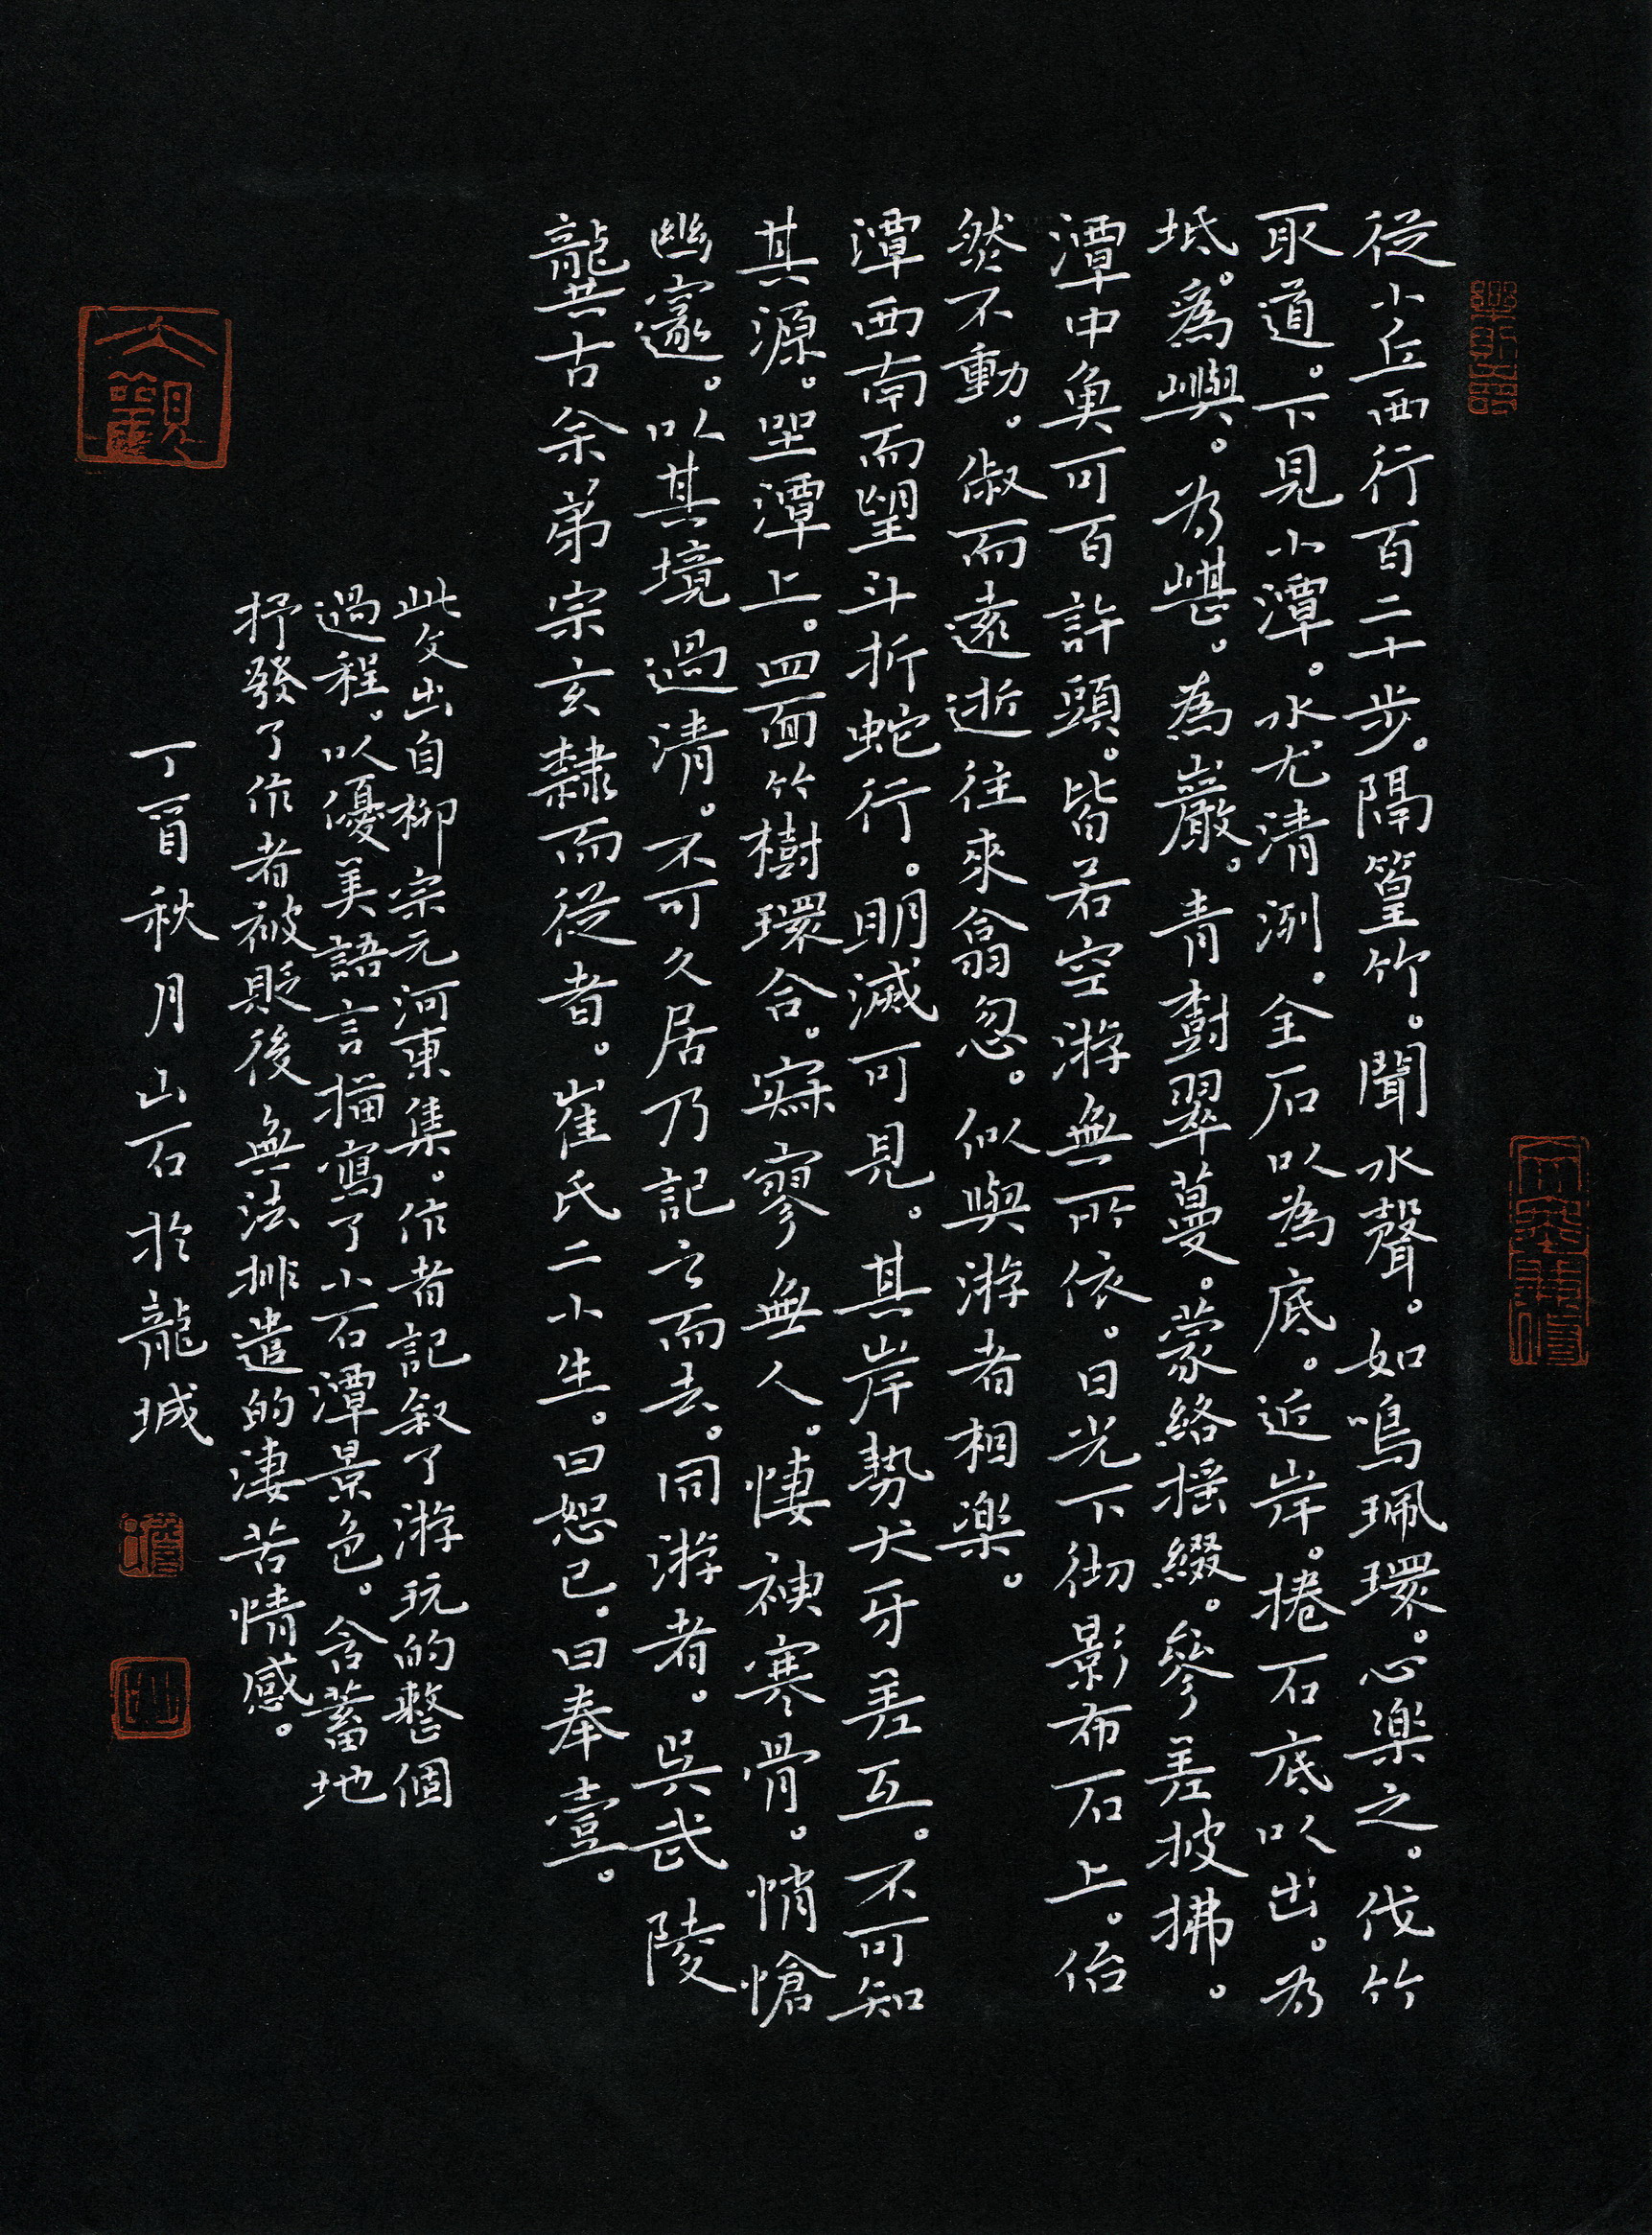 從小丘西行百二十步。隔篁竹。聞水聲。如鳴珮環。心樂之。伐竹
取道。下見小潭。水尤清洌。全石以為底。近岸。捲石底以出。為
坻。為嶼。為嵁。為巖。青樹翠蔓。蒙絡搖綴。參差披拂。
潭中魚可百許頭。皆若空游無所依。日光下徹影布石上。佁
然不動。俶而遠逝往來翕忽。似與游者相樂。
潭西南而望斗折蛇行。明滅可見。其岸勢犬牙差互。不可知
其源。坐潭上。四面竹樹環合。寂寥無人。悽神寒骨。悄愴
幽邃。以其境過清。不可久居乃記之而去。同游者。吳武陵
龔古余弟宗玄隸而從者。崔氏二小生。曰恕已。曰奉壹。
此文出自柳宗元河東集。作者記敘了游玩的整個
過程。以優美語言描寫了小石潭景色。含蓄地
抒發了作者被貶後無法排遣的淒苦情感。
丁酉秋月山石於龍城
大觀